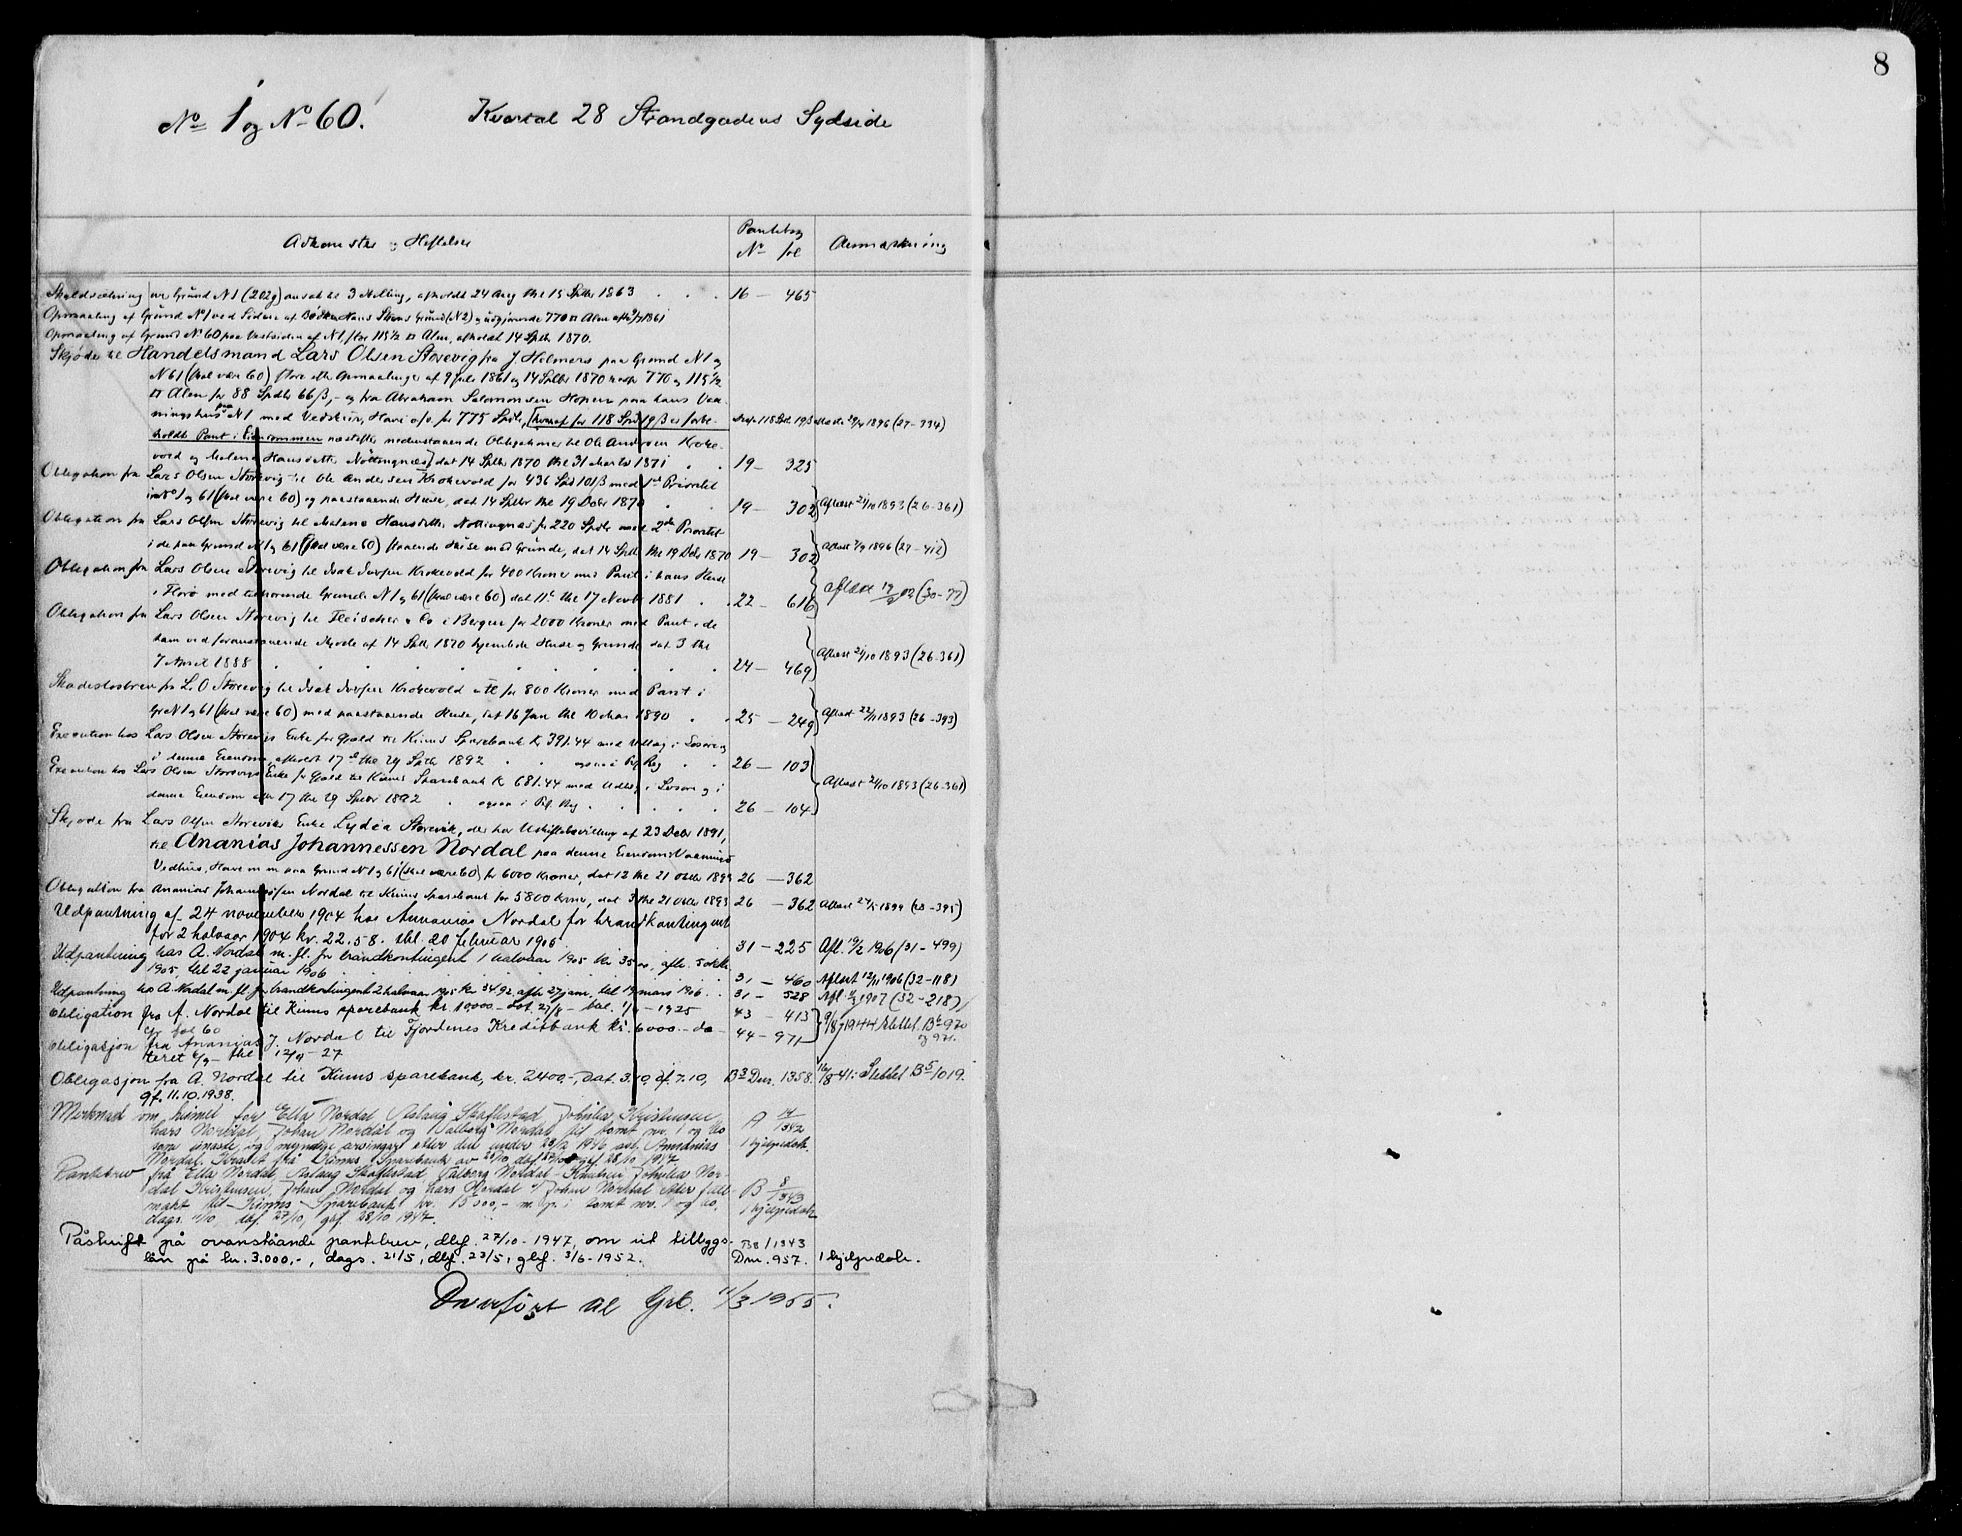 8
No 1 og No 60. Kvartal 28 Strandgadens Sydside
Adkomster og Heftelser
Pantebog
No fol
Anmærkning
Skyldsætning over Grund N 1 (202g) ansat til 3 Skilling, afholdt 24 Aug thl 15 Sptbr 1863 16 — 465
Opmaaling af Grund No 1 ved Siden af Hans Grund (N 2) udgjørende 770 □ Alen 1861
Opmaaling af Grund No 60 paa Vestsiden af N 1, stor 115½ □ Alen, afholdt 14 Sptbr 1870.
Skjøde til Handelsmand Lars Olsen Storevig fra J. Helmers paa Grund N 1 og
N 61 (skal være 60) store efter Opmaalinger af 9 1861 og 14 Sptbr 1870 resp 770 og 115½
□ Alen for 88 Spdlr 66 ß, og fra Abraham Salomonsen Hopen paa hans Vaa-
ningshus paa N 1 med Vedskur, Have for 775 Spdlr, [hvoraf for 118 Spd 19 ß er forbe-
holdt Pant i Eiendommen næstefter nedenstaaende Obligationer til Ole Andersen Kroke-
vold og Malene Hansdatter Nottingnæs] dat 14 Sptbr 1870 thl 31 Marts 1871 19 — 325
1896 (27-334)
Obligation fra Lars Olsen Storevig til Ole Andersen Krokevold for 436 Spd 101 ß med 1ste Prioritet
i No 1 og 61 (skal være 60) og paastaaende Huse, dat 14 Sptbr thl 19 Decbr 1870 19 — 302 Aflæst 21/10 1893 (26-361)
Obligation fra Lars Olsen Storevig til Malene Hansdatter Nottingnæs for 220 Spdlr med 2den Prioritet
i de paa Grund N 1 og 61 (skal være 60) staaende Huse med Grunde, dat 14 Sptbr thl 19 Dcbr 1870 19 — 302 Aflæst 1896 (27-412)
Obligation fra Lars Olsen Storevig til Isak Krokevold for 400 Kroner med Pant i hans Huse
i Florø med tilhørende Grunde N 1 og 61 (skal være 60) dat 11te thl 17 Novbr 1881 22 — 616 Aflæst (30-77)
Obligation fra Lars Olsen Storevig til Fleischer & Co i Bergen for 2000 Kroner med Pant i de
ham ved foranstaaende Skjøde af 14 Sptbr 1870 hjemlede Huse og Grunde, dat 3 thl
7 April 1888 24 — 469 Aflæst 21/10 1893 (26-361)
Skadesløsbrev fra L. O Storevig til Isak Krokevold for 800 Kroner med Pant i
Gr N 1 og 61 (skal være 60) med paastaaende Huse, dat 16 Jan thl 10 Mar 1890 25 — 249 Aflæst 22/11 1893 (26-393)
Execution hos Lars Olsen Storevigs Enke for Gjæld til Kinns Sparebank Kr 391.44 med Udlæg i Løsøre og
i denne Eiendom, afholdt 17de thl 29 Sptbr 1892 26 — 103
Execution hos Lars Olsen Storevigs Enke for Gjæld til Kinns Sparebank Kr 681.44 med Udlæg i Løsøre og i
denne Eiendom 17 thl 29 Sptbr 1892 26 — 104 Aflæst 21/10 1893 (26-361)
Skjøde fra Lars Olsen Storeviks Enke Lydia Storevik, der har Uskiftebevilling af 23 Decbr 1891,
til Ananias Johannessen Nordal paa denne Eiendoms Vaanings
Vedhus, Have m m paa Grund N 1 og 61 (skal være 60) for 6000 Kroner, dat 12 thl 21 Octbr 1893 26 — 362
Obligation fra Ananias Johannessen Nordal til Kinns Sparebank for 5800 Kroner, dat 3 thl 21 Octbr 1893 26 — 362 Aflæst 1899 (28-395)
Udpantning af 24 november 1904 hos Annanias Nordal for brandkontingent
for 2 halvaar 1904 kr. 22.58. thl. 20 februar 1905 31 — 225 Afl. 19/2 1906 (31-499)
Udpantning hos A. Nordal m. fl. for brandkontingent 1 halvaar 1905 kr 35 afh. 5 oktbr
1905, thl 22 januar 1906 31 — 460 Aflæst 12/11 1906 (32-118)
Udpantning hos A. Nordal m. fl. for brandkontingent 2 halvaar 1905 kr 34.92, afh 27 jani, thl 19 mars 1906 31 — 528 Afl. 1907 (32-218)
Obligation fra A. Nordal til Kinns sparebank kr. 10000 — dat. 27/8 — thl. — 1925 43 — 413
Obligasjon fra Ananias J. Nordal til Fjordenes Kreditbank kr. 6000.- da-
teret thl 12/9 - 27 44 — 971 1944 slettet B6 970
og 971.
Obligasjon fra A. Nordal til Kinns sparebank, kr. 2400,-, dat. 3.10, df. 7.10, B3 Dnr. 1358. 8-41: Slettet B5 1019.
gf. 11.10.1938.
Merknad om heimel for Ella Nordal, Aslaug Skaflestad, Johilda Kristensen,
Lars Nordal, Johan Nordal og Valborg Nordal til tomt nr. 1 og 60
som einaste og myndige arvingar etter den under 1946 avl. Annanias
Nordal. Kravet frå Kinns Sparebank av 25/10, daf. gf. 28/10 1947. A 14/342 1 hjelpedok.
Pantebrev frå Ella Nordal, Aslaug Skaflestad, Valborg Nordal-Knutsen, Johilda Nor-
dal Kristensen, Johan Nordal og Lars Nordal v/ Johan Nordal etter full-
makt til Kinns Sparebank kr. 15000,- m. p. i tomt nr. 1 og 60,
dags. 4/10, daf. 27/10, gf. 28/10 1947. B 8/1343 1 hjelpedok
Påskrift på ovanståande pantebrev, dlgf. 27/10-1947, om eit tilleggs- B8/1343
lån på kr. 3.000,-, dags. 21/5, dlgf. 23/5, glgf. 3/6-1952. Dnr. 957. 1 hjelpedok.
Overført til Grb. 11/3 1955.